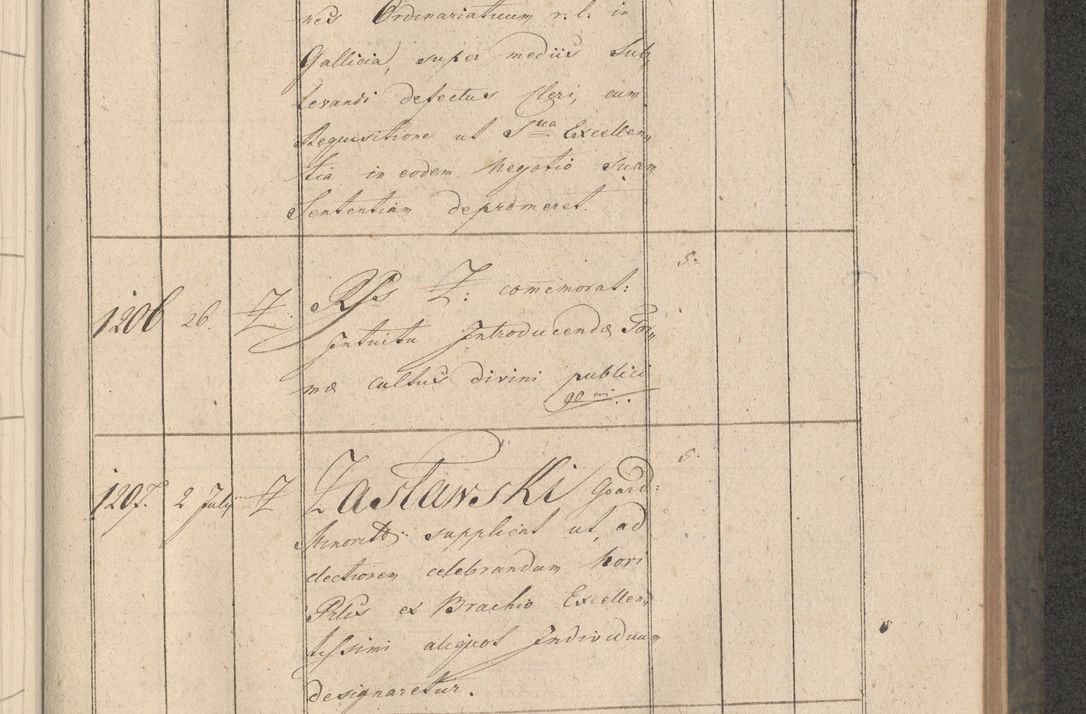 nes Ordinariatuum r: l: in
Gallicia, super mediis Sub„
levandi defectus Cleri, cum
Requisitione ut Sua Excellen„
tia in eodem negotio suam
Sententiam depromeret.
5.
1206 26. Z: Rss Z: comemorat:
Intuitu Introducendæ For„
mæ cultus divini publici
5.
1207. 2 July Z Zasławski Guard:
Minorit: supplicat ut, ad
electionem celebrandam novi
Pttis ex Brachio Excellen„
tissimi aliquot Individuum
designaretur.